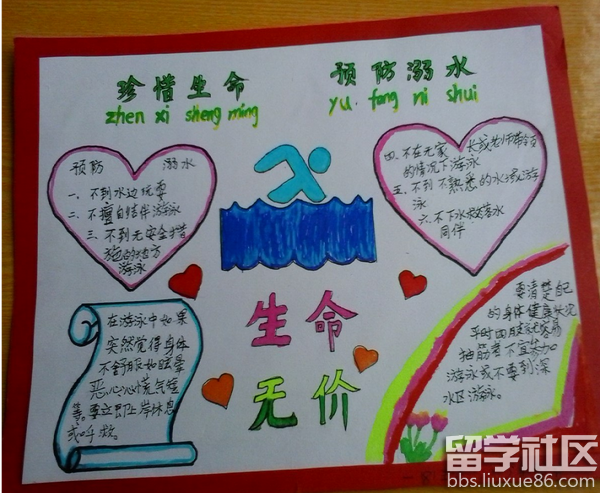 珍惜生命
zhen xi sheng ming
预防溺水
yu fang ni shui
预防 溺水
一、不到水边玩耍
二、不擅自结伴游泳
三、不到无安全措
施的地方
游泳
四、不在无家长或老师带领
的情况下游泳
五、不到不熟悉的水域游
泳
六、不下水救落水
同伴
生命
无价
在游泳中如果
突然觉得身体
不舒服如眩晕
恶心心慌气短
等。要立即上岸休息
或呼救。
要清楚自己
的身体健康状况
平时四肢就容易
抽筋者不宜参加
游泳或不要到深
水区游泳。
留学社区
bbs.liuxue86.com